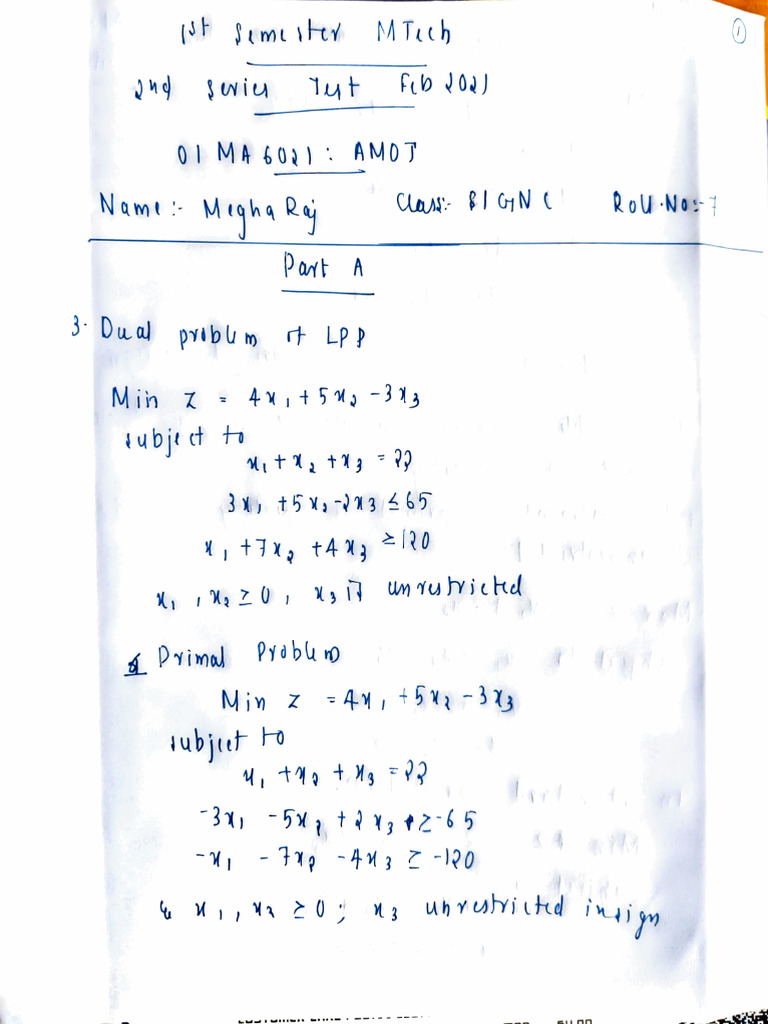 1
1st Semester MTech
2nd Series Test Feb 2021
01 MA 6021: AMOT
Name:- Megha Raj Class:- S1 GNC Roll.No:- 7
Part A
3. Dual problem of LPP
Min Z = 4x₁ + 5x₂ - 3x₃
subject to
x₁ + x₂ + x₃ = 22
3x₁ + 5x₂ - 2x₃ ≤ 65
x₁ + 7x₂ + 4x₃ ≥ 120
x₁, x₂ ≥ 0, x₃ is unrestricted
Primal Problem
Min Z = 4x₁ + 5x₂ - 3x₃
subject to
x₁ + x₂ + x₃ = 22
-3x₁ - 5x₂ + 2x₃ ≥ -65
-x₁ - 7x₂ - 4x₃ ≥ -120
& x₁, x₂ ≥ 0; x₃ unrestricted in sign